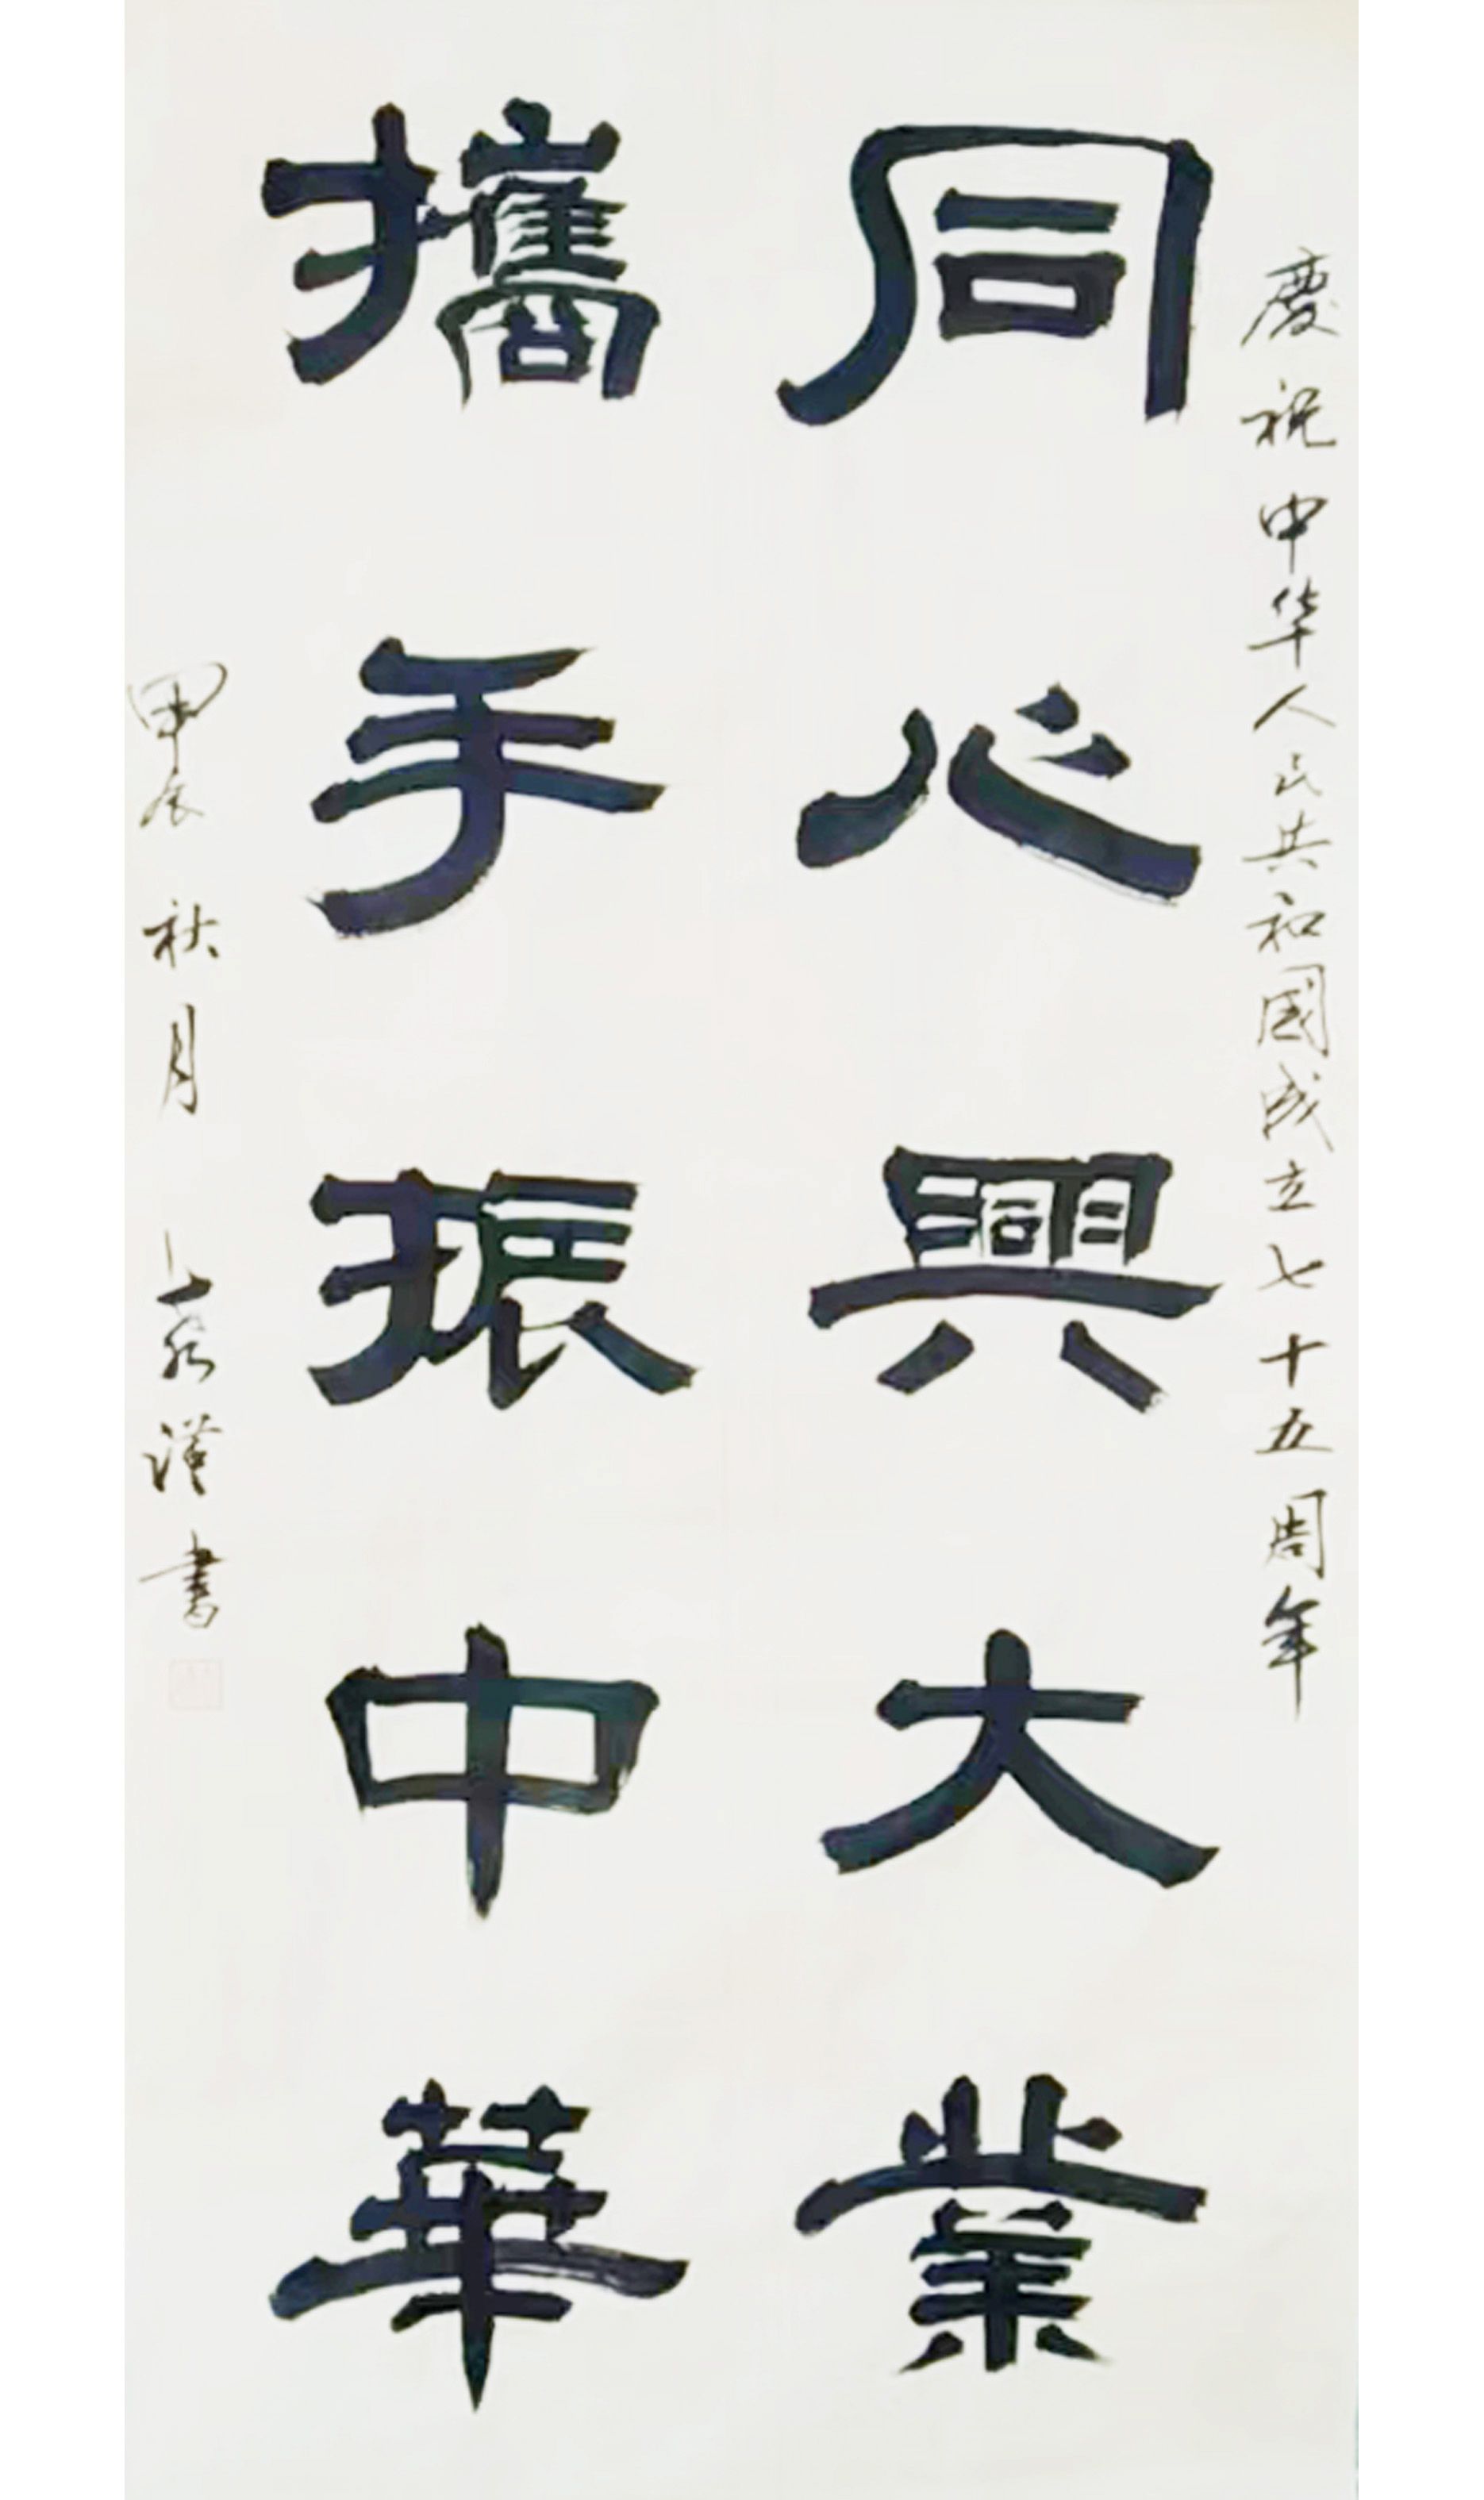 慶祝中华人民共和國成立七十五周年
同心興大業
攜手振中華
甲辰秋月
漢書